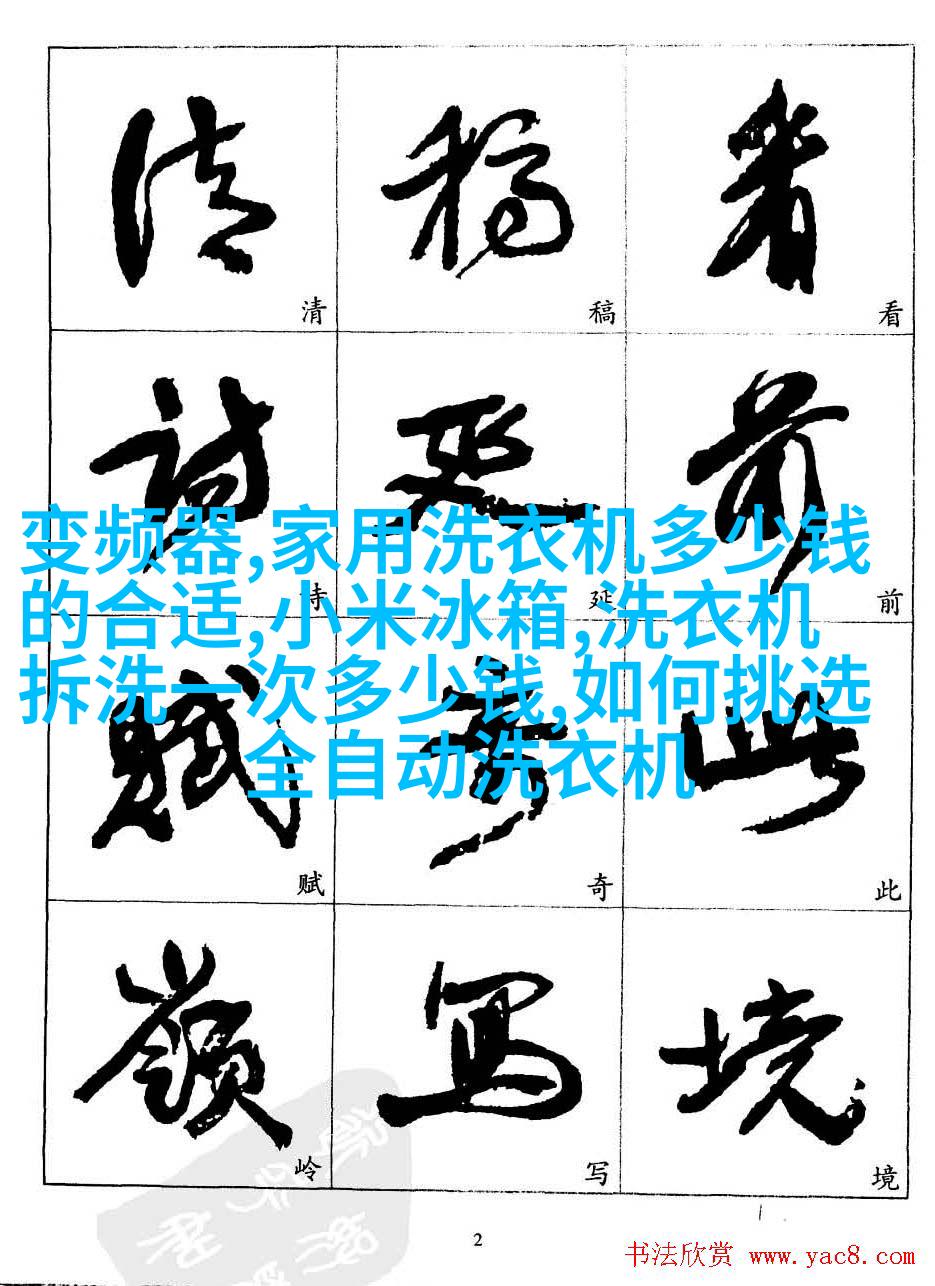 清 稿 看
清 稿 看
詩 延 前
诗 延 前
变频器,家用洗衣机多少钱
的合适,小米冰箱,洗衣机
拆洗一次多少钱,如何挑选
全自动洗衣机
賦 奇 此
赋 奇 此
嶺 写 境
岭 写 境
2
书法欣赏 www.yac8.com